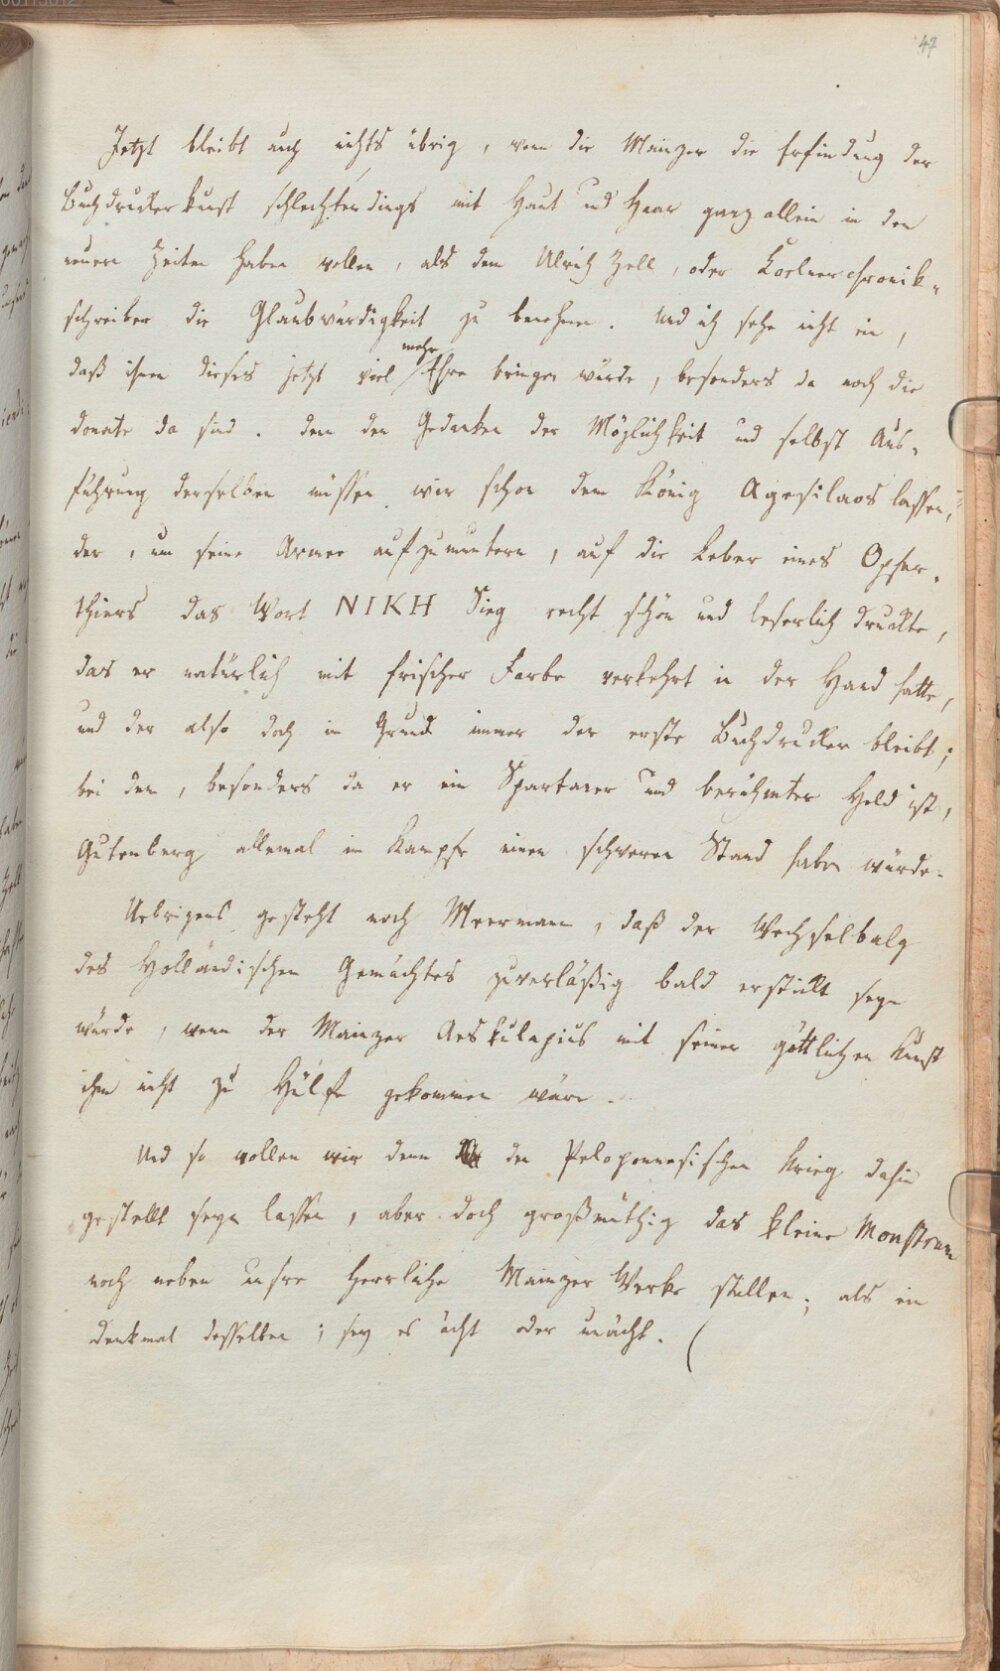 47
Jetzt bleibt auch nichts übrig, wenn die Mainzer die Erfindung der
Buchdruckerkunst schlechterdings mit Haut und Haar ganz allein in den
neuern Zeiten haben wollen, als dem Ulrich Zell, oder Koelnerchronik-
schreiber die Glaubwürdigkeit zu benehmen. Und ich sehe nicht ein,
daß ihnen dieses jetzt viel mehr Ehre bringen würde, besonders da noch die
Donate da sind. Denn den Gedanken der Möglichkeit und selbst Aus-
führung derselben müssen wir schon dem König Agesilaos lassen,
der, um seine Armee aufzumuntern, auf die Leber eines Opfer-
thiers das Wort NIKH Sieg recht schön und leserlich druckte,
das er natürlich mit frischer Farbe verkehrt in der Hand hatte,
und der also doch im Grund immer der erste Buchdrucker bleibt;
bei dem, besonders da er ein Spartaner und berühmter Held ist,
Gutenberg allemal im Kampfe einen schweren Stand haben würde.
Uebrigens gesteht noch Meermann, daß der Wechselbalg
des Holländischen Gemächtes zuverläßig bald erstickt seyn
würde, wenn der Mainzer Aeskulapius mit seiner göttlichen Kunst
ihm nicht zu Hülfe gekommen wäre.
Und so wollen wir denn den Peloponnesischen Krieg dahin
gestellt seyn lassen, aber doch großmüthig das kleine Monstrum
noch neben unsre herrliche Mainzer Werke stellen; als ein
Denkmal desselben; sey es ächt oder unächt.